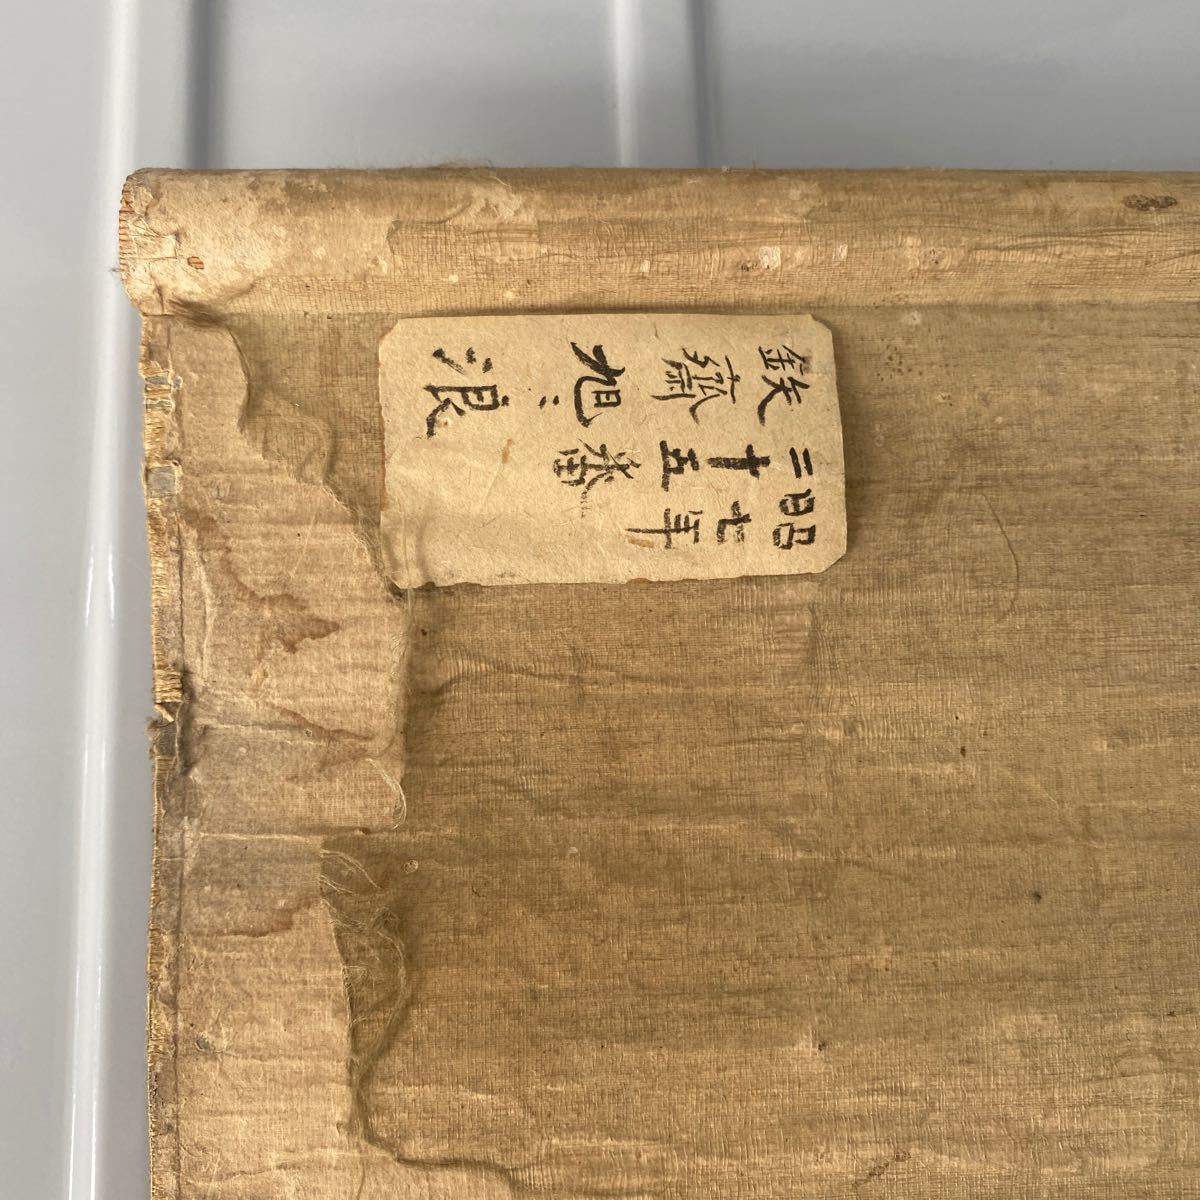 昭七年
二十五番
鉄齋旭ニ浪